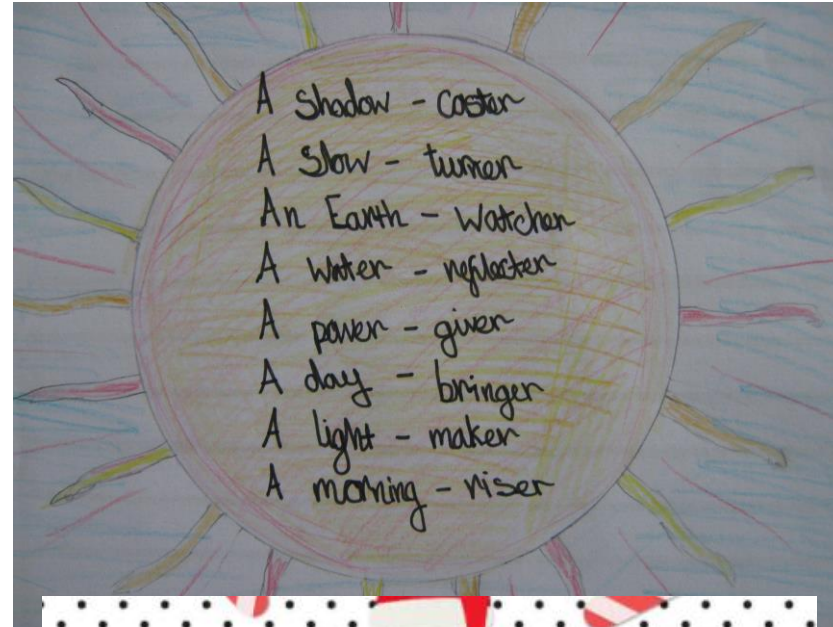 A shadow - caster
A slow - turner
An Earth - Watcher
A Water - reflecter
A power - giver
A day - bringer
A light - maker
A morning - riser